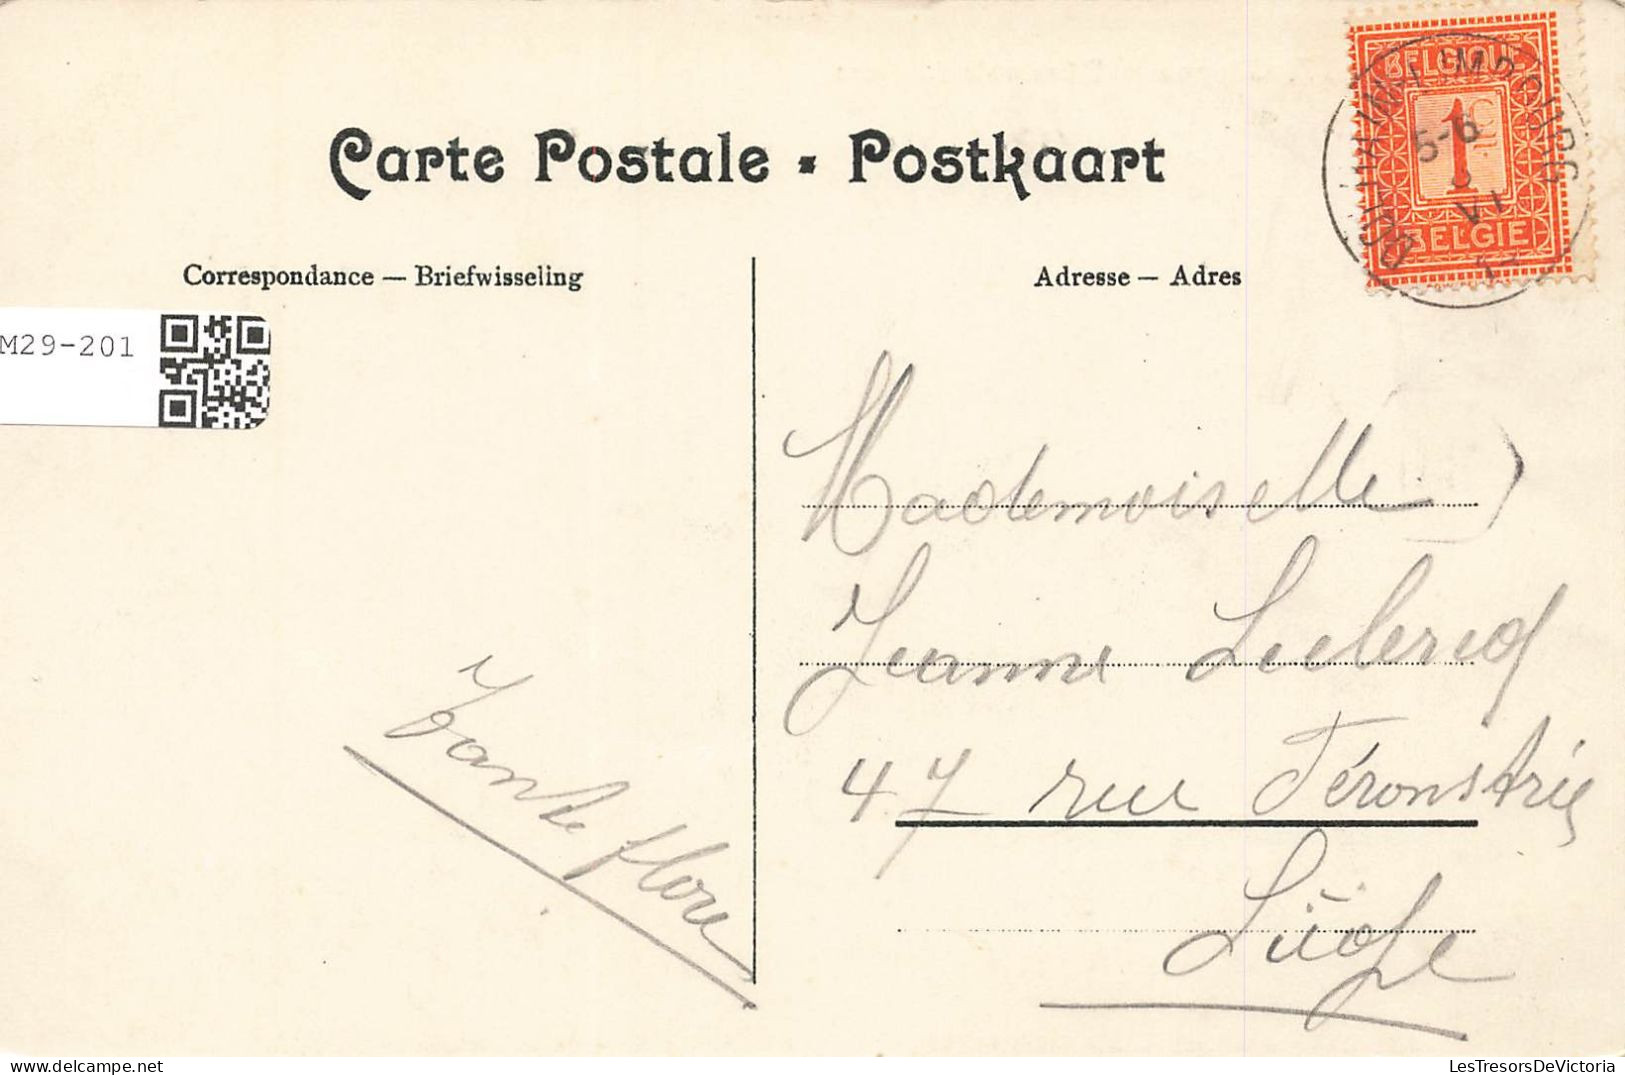 Carte Postale - Postkaart
Correspondance — Briefwisseling
Adresse — Adres
BELGIQUE
1
BELGIE
DOLHAIN-LIMBOURG
5-6
VI
M29-201
Mademoiselle
Jeanne Leclercq
47 rue Féronstrée
Liége
Tante flore
LesTresorsDeVictoria